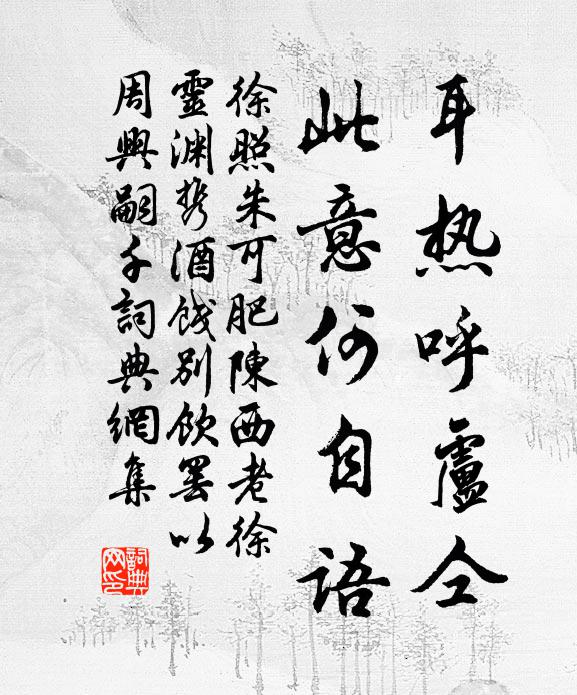 耳热呼盧仝
此意何自語
徐照朱可肥陳西老徐
靈渊携酒餞別飲罢以
周興嗣千詞典網集
詞典网印